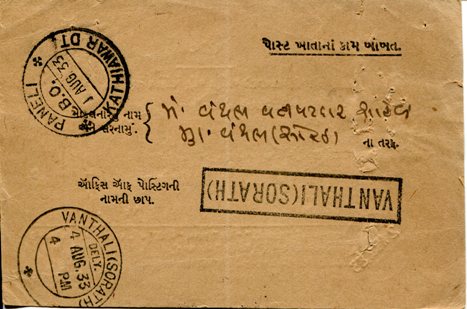 પોસ્ટ ખાતાનાં કામ બાબત.
PANELI B.O.
1 AUG 33
KATHIAWAR DT.
નામ
મે. વંથલી
મુ. વંથલી (સોરઠ)
ના તરફ.
ઑફિસ ઑફ પોસ્ટિંગની
નામની છાપ.
VANTHALI (SORATH)
VANTHALI (SORATH)
DELY.
4 AUG. 33
4 PM